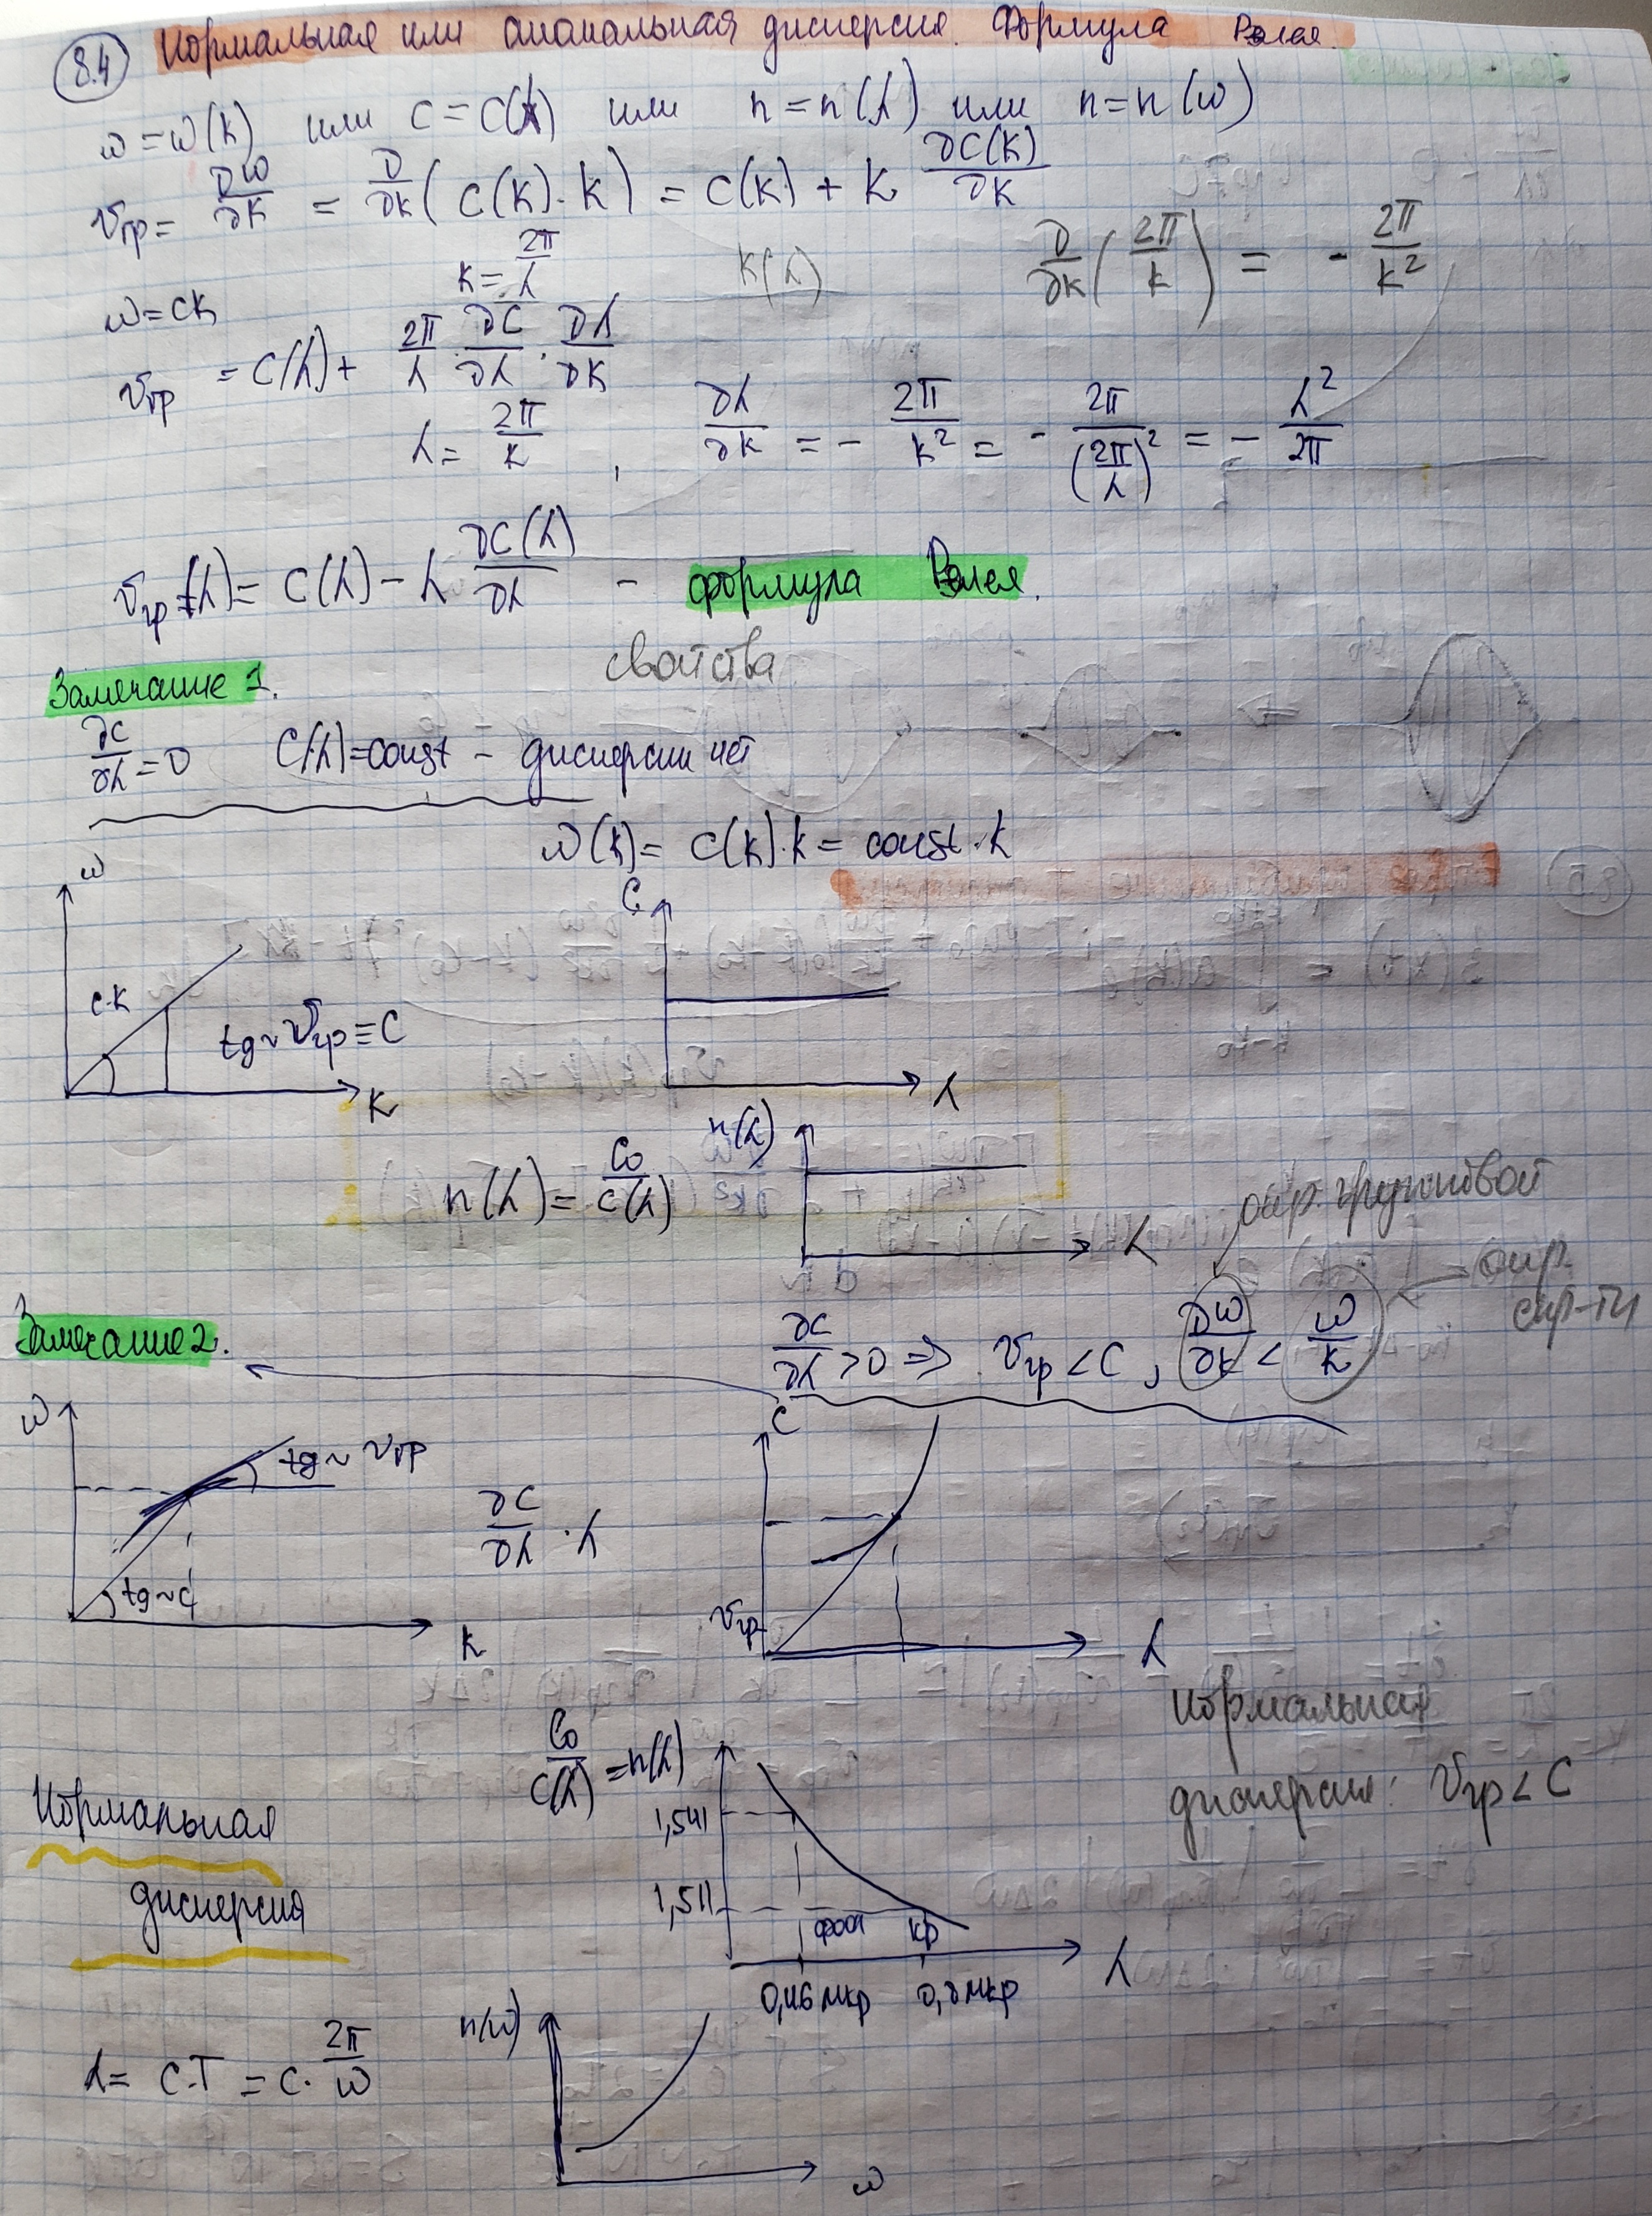 8.4 Нормальная или аномальная дисперсия. Формула Рэлея.
ω = ω(k) или c = c(λ) или n = n(λ) или n = n(ω)
v_гр = ∂ω/∂k = ∂/∂k (c(k)·k) = c(k) + k ∂c(k)/∂k
k = 2π/λ
k(λ)
∂/∂k (2π/k) = - 2π/k²
ω = ck
v_гр = c(λ) + 2π/λ · ∂c/∂λ · ∂λ/∂k
λ = 2π/k , ∂λ/∂k = - 2π/k² = - 2π/(2π/λ)² = - λ²/2π
v_гр(λ) = c(λ) - λ ∂c(λ)/∂λ - формула Рэлея.
свойства
Замечание 1.
∂c/∂λ = 0 c(λ) = const - дисперсии нет
ω(k) = c(k)·k = const·k
ω
c·k
tg ~ v_гр = c
k
c
λ
n(λ) = c₀/c(λ)
n(λ)
λ
опр. групповой
опр. скр-ти
Замечание 2.
∂c/∂λ > 0 => v_гр < c , ∂ω/∂k < ω/k
ω
tg ~ v_гр
tg ~ c
k
∂c/∂λ · λ
c
v_гр
λ
Нормальная
дисперсия: v_гр < c
Нормальная
дисперсия
c₀/c(λ) = n(λ)
1,541
1,511
фиол кр
0,46 мкр
λ
λ = c·T = c· 2π/ω
n(ω)
ω